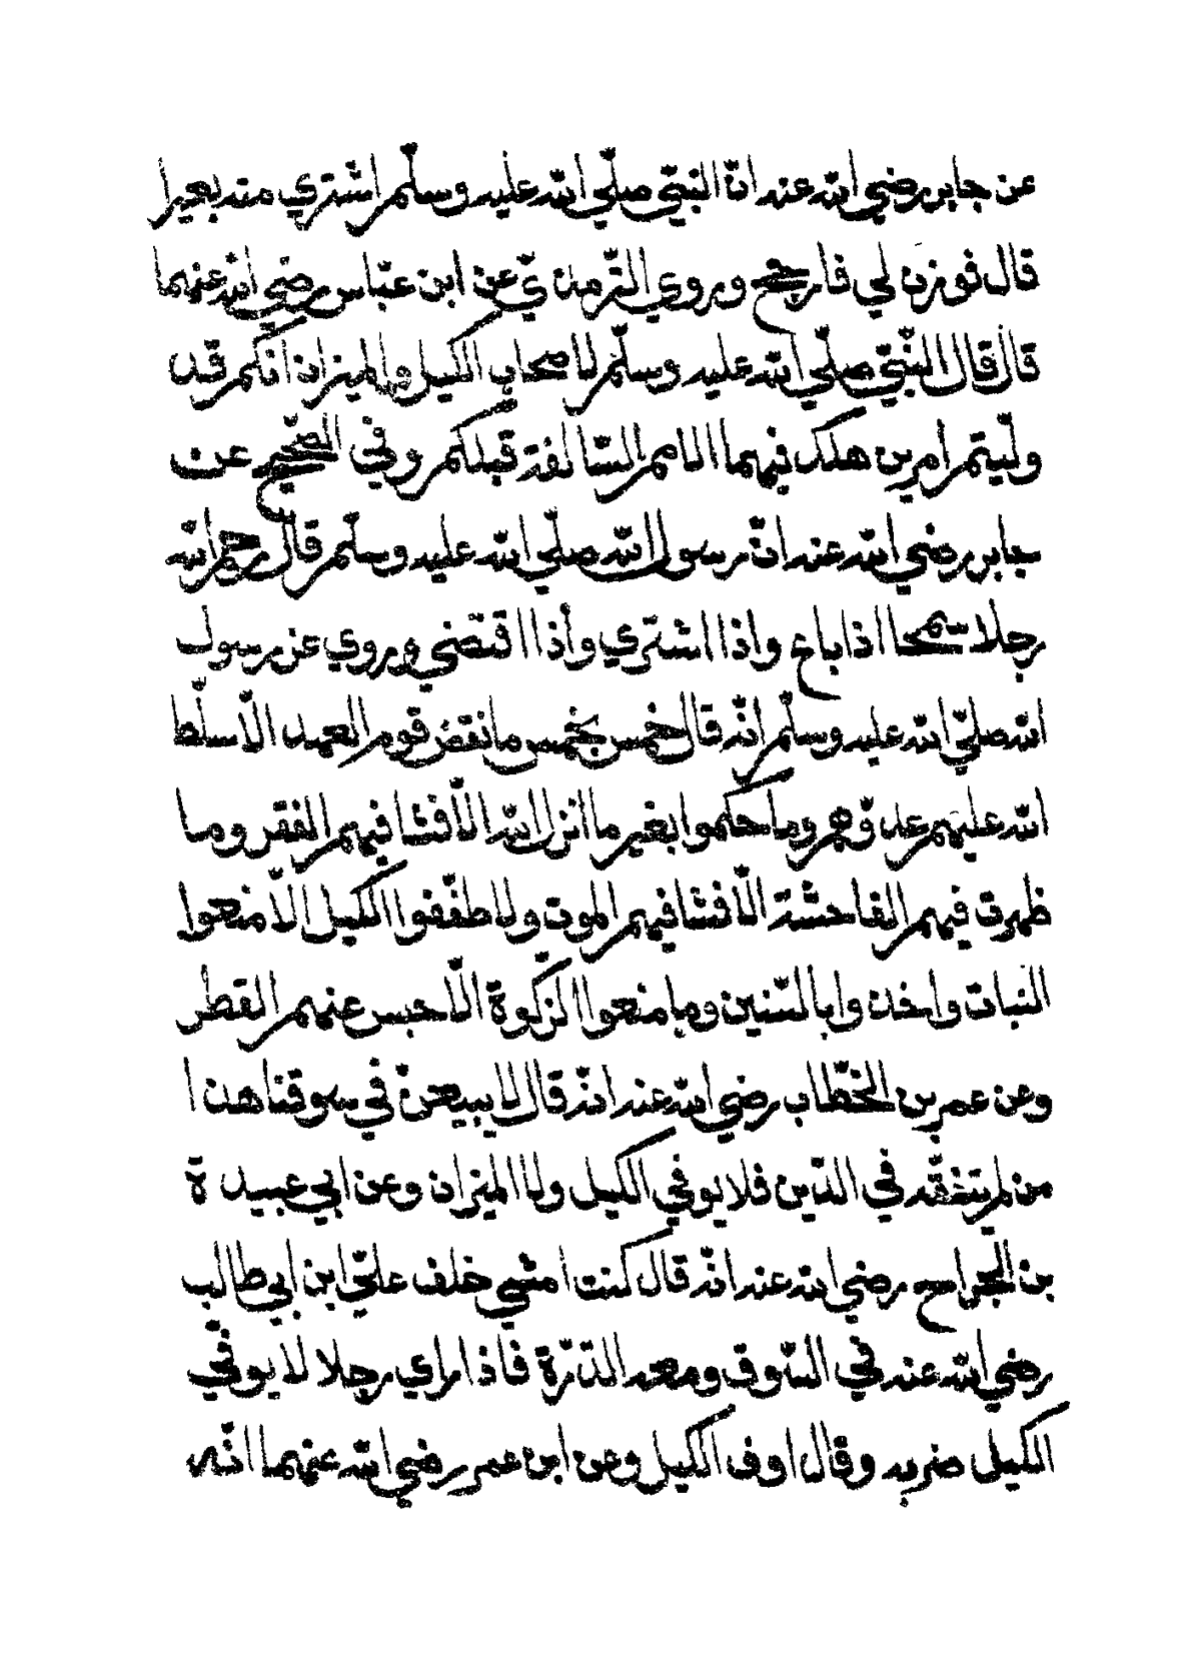 عن جابر رضي الله عنه انّ النبيّ صلّي الله عليه وسلّم اشتري منه بعيرا
قال فوزن لي فارجح وروي التّرمذيّ عن ابن عبّاس رضي الله عنهما
قال قال النّبيّ صلّي الله عليه وسلّم لاصحاب الكيل والميزان انّكم قد
ولّيتم امرين هلك فيهما الامم السّالفة قبلكم وفي الصّحيح عن
جابر رضي الله عنه انّ رسول الله صلّي الله عليه وسلّم قال رحم الله
رجلا سمحا اذا باع واذا اشتري وأذا اقتضي وروي عن رسول
الله صلّي الله عليه وسلّم انّه قال خمس بخمس ما نقض قوم العهد الّا سلّط
الله عليهم عدوّهم وما حكموا بغير ما انزل الله الّا فشا فيهم الفقر وما
ظهرت فيهم الفاحشة الّا فشا فيهم الموت ولا طفّفوا الكيل الّا منعوا
النبات واخذوا بالسّنين وما منعوا الزكوة الّا حبس عنهم القطر
وعن عمر بن الخطّاب رضي الله عنه انّه قال لا يبيعنّ في سوقنا هذا
من لم يتفقّه في الدّين فلا يوفي الكيل ولا الميزان وعن ابي عبيدة
بن الجراح رضي الله عنه انّه قال كنت امشي خلف عليّ ابن ابي طالب
رضي الله عنه في السّوق ومعه الدّرّة فاذا راي رجلا لا يوفي
الكيل ضربه وقال اوف الكيل وعن ابن عمر رضي الله عنهما انّه